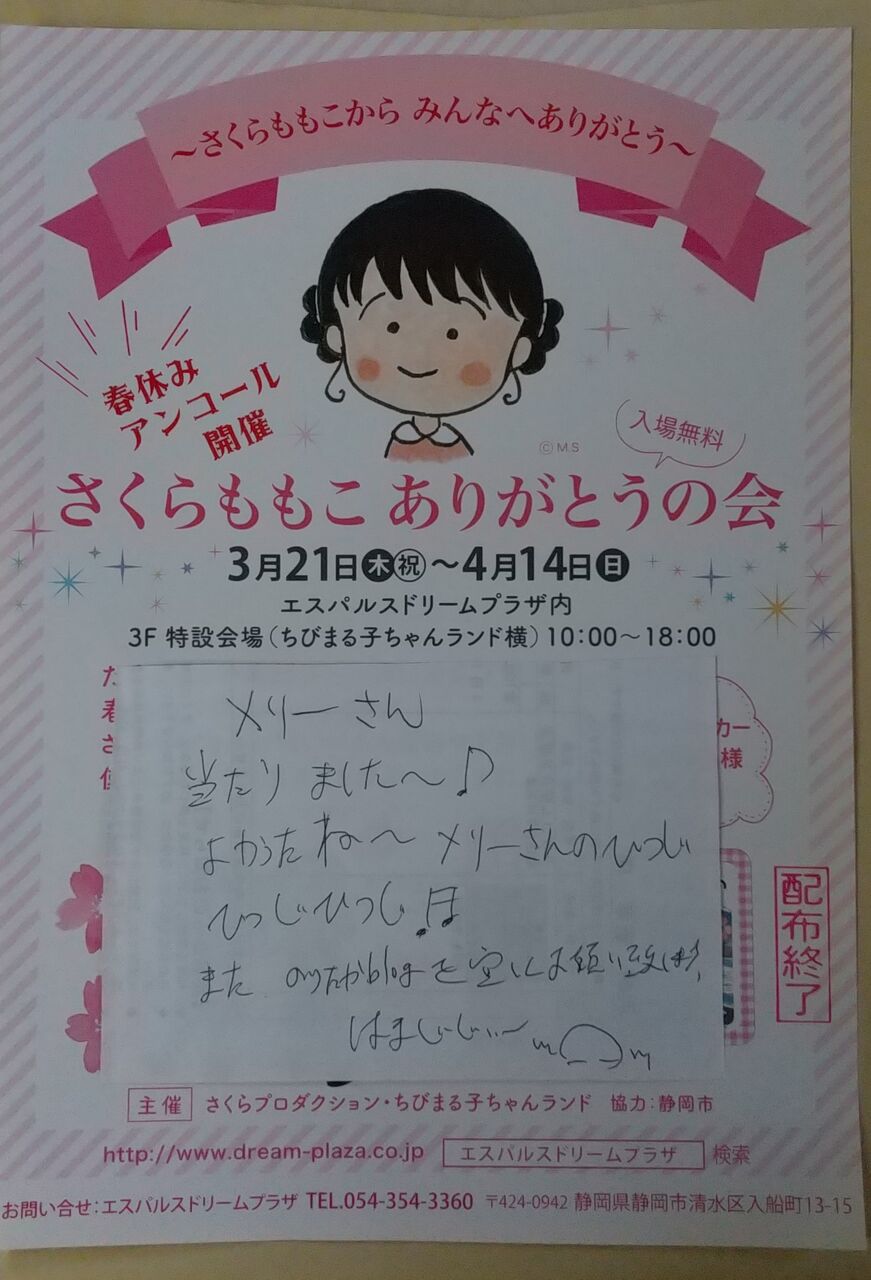 ～さくらももこから みんなへありがとう～
春休み
アンコール
開催
©M.S
入場無料
さくらももこ ありがとうの会
3月21日木祝～4月14日日
エスパルスドリームプラザ内
3F 特設会場（ちびまる子ちゃんランド横）10:00～18:00
カー
様
メリーさん
当たりました～♪
よかったね～ メリーさんのひつじ
ひつじひつじ♬
また のりたかblogを宜しくお願い致します
はまじじぃ～
配布終了
主催 さくらプロダクション・ちびまる子ちゃんランド 協力：静岡市
http://www.dream-plaza.co.jp エスパルスドリームプラザ 検索
お問い合せ：エスパルスドリームプラザ TEL.054-354-3360 〒424-0942 静岡県静岡市清水区入船町13-15